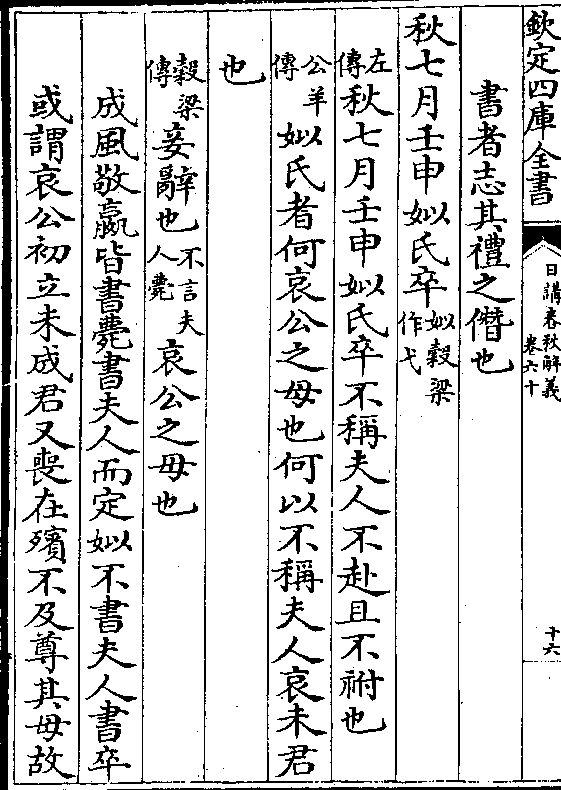 欽定四庫全書
日講春秋解義
卷六十
十六
書者志其禮之僭也
秋七月壬申姒氏卒姒穀梁作弋
左傳秋七月壬申姒氏卒不稱夫人不赴且不祔也
公羊傳姒氏者何哀公之母也何以不稱夫人哀未君
也
穀梁傳妾辭也不言夫人薨哀公之母也
成風敬嬴皆書薨書夫人而定姒不書夫人書卒
或謂哀公初立未成君又喪在殯不及尊其母故